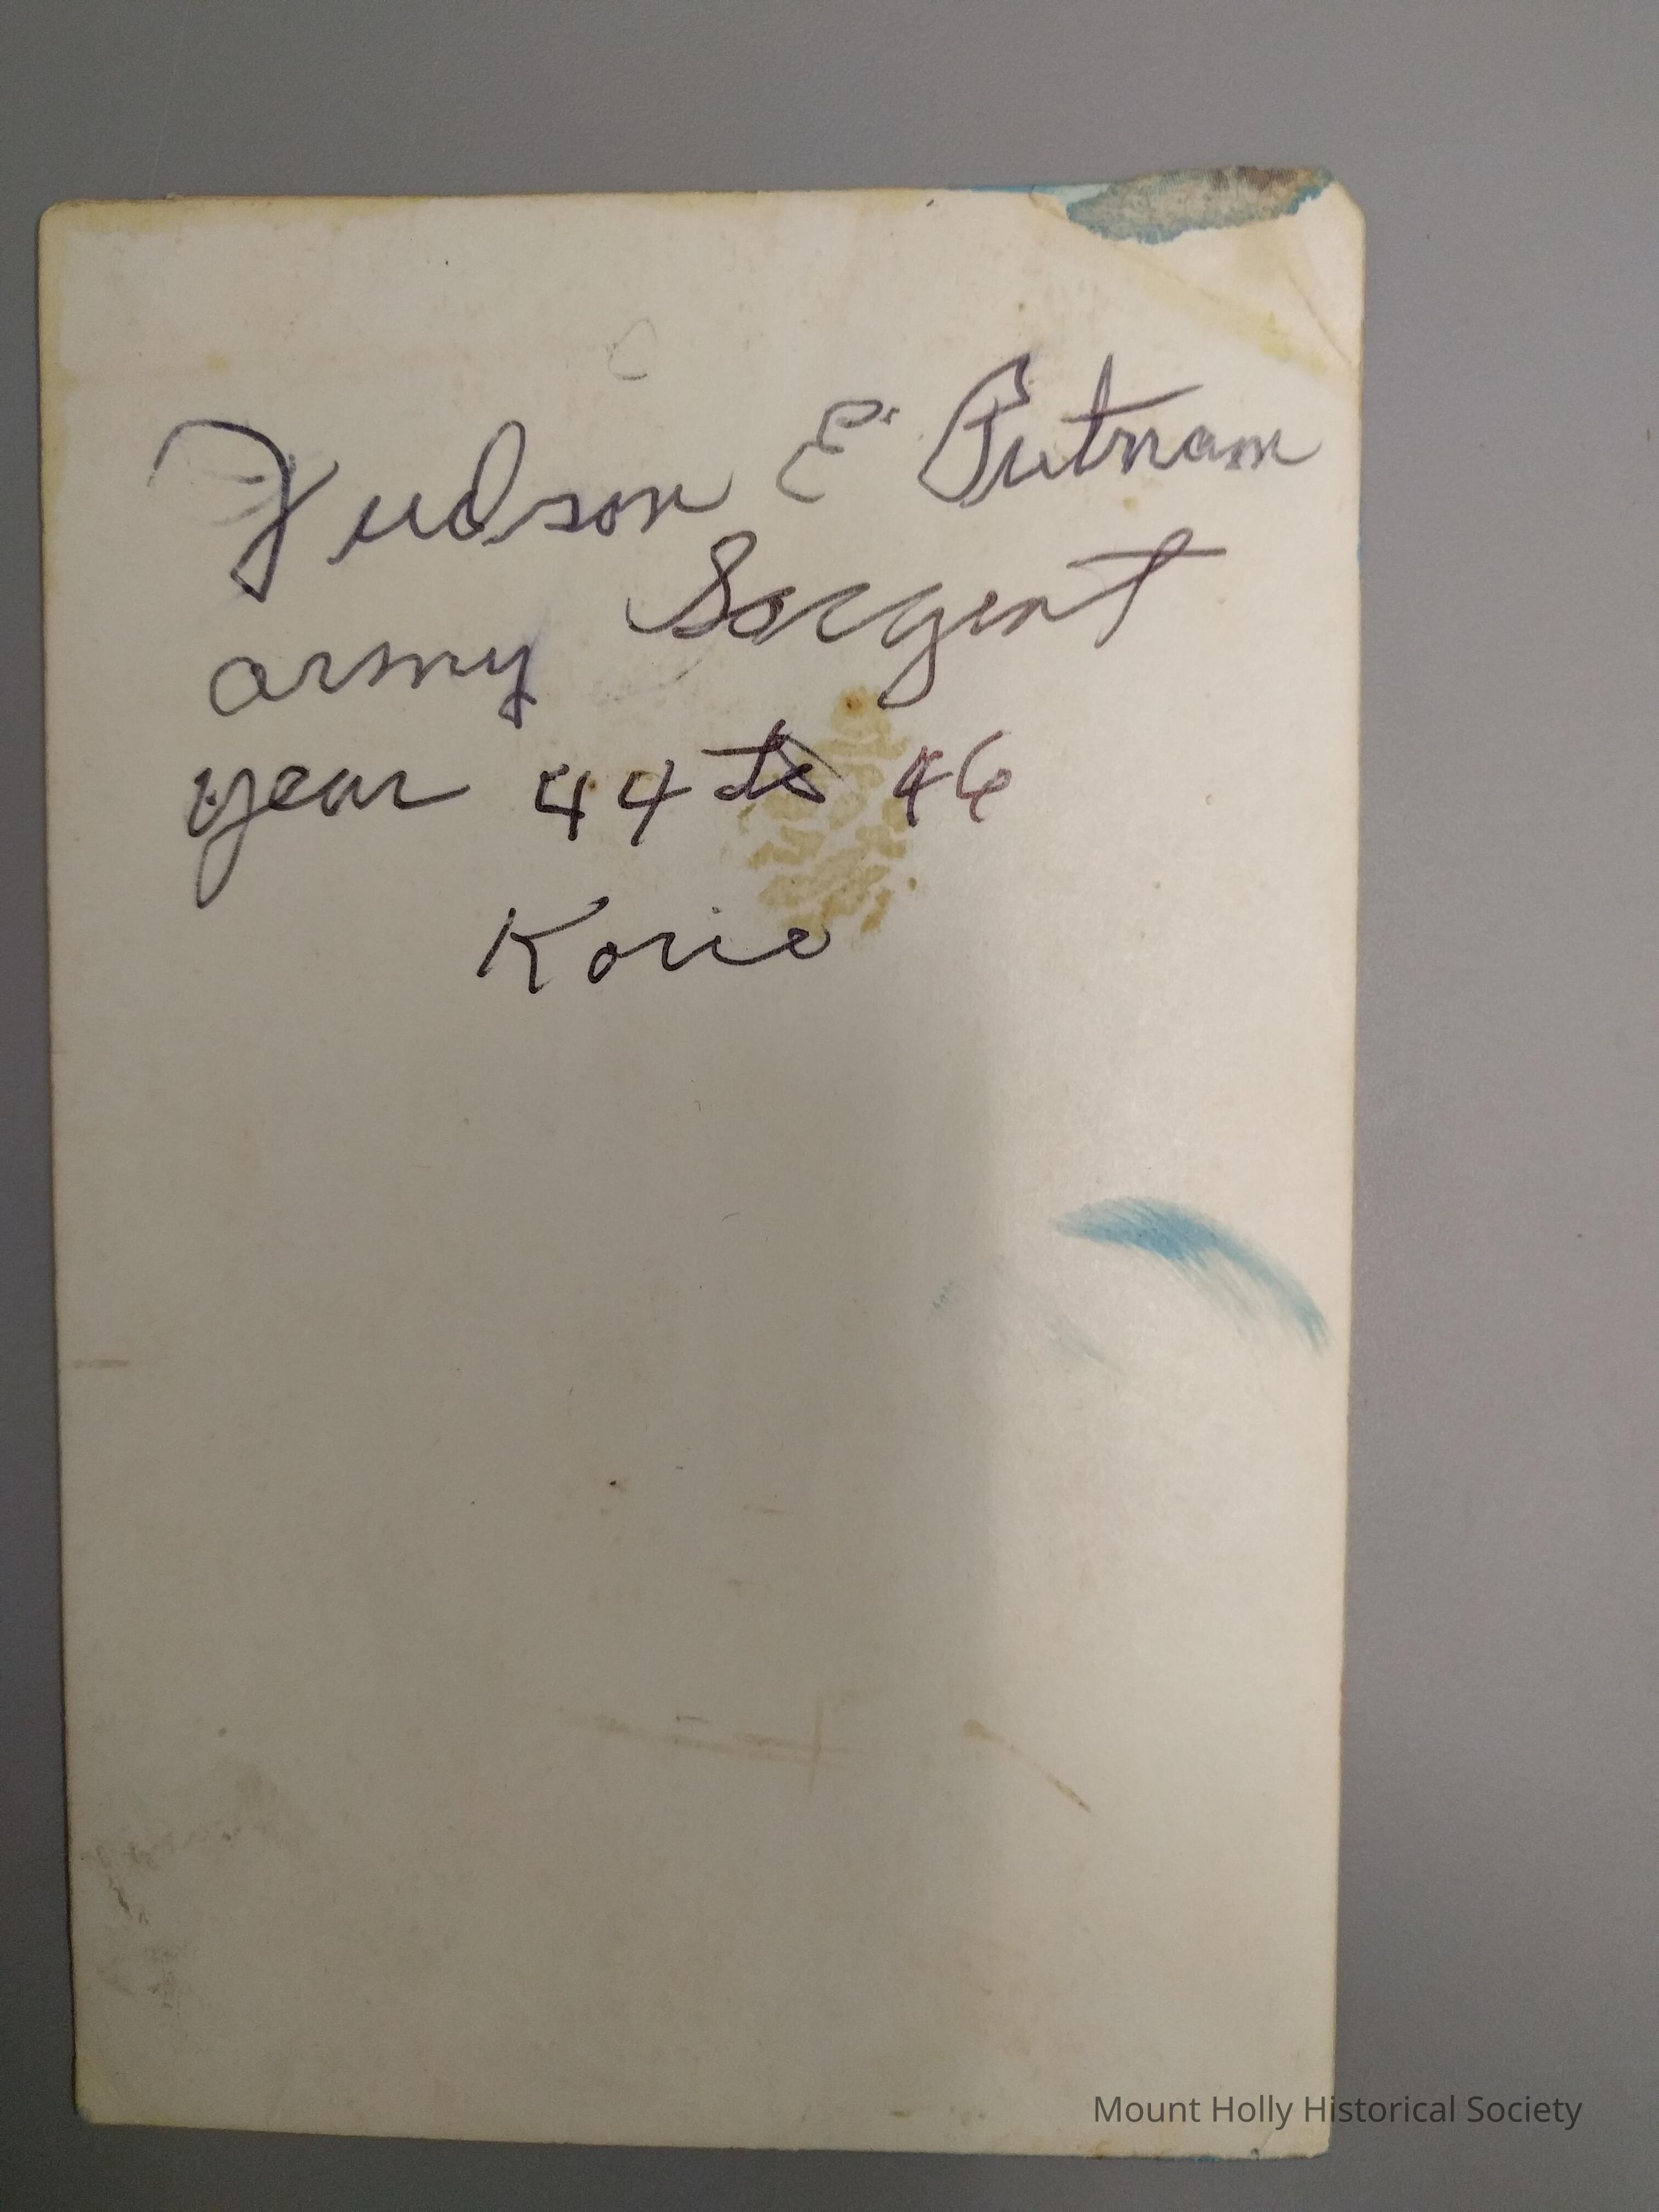 Judson E. Putnam
Sargent
army
year 44 to 46
Korie
Mount Holly Historical Society